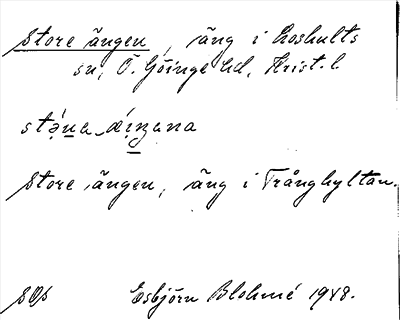 Store ängen, äng i Loshults
sn, Ö. Göinge hd, Krist. l.
Store ängen, äng i Trånghyltan.
Esbjörn Blohmé 1948.